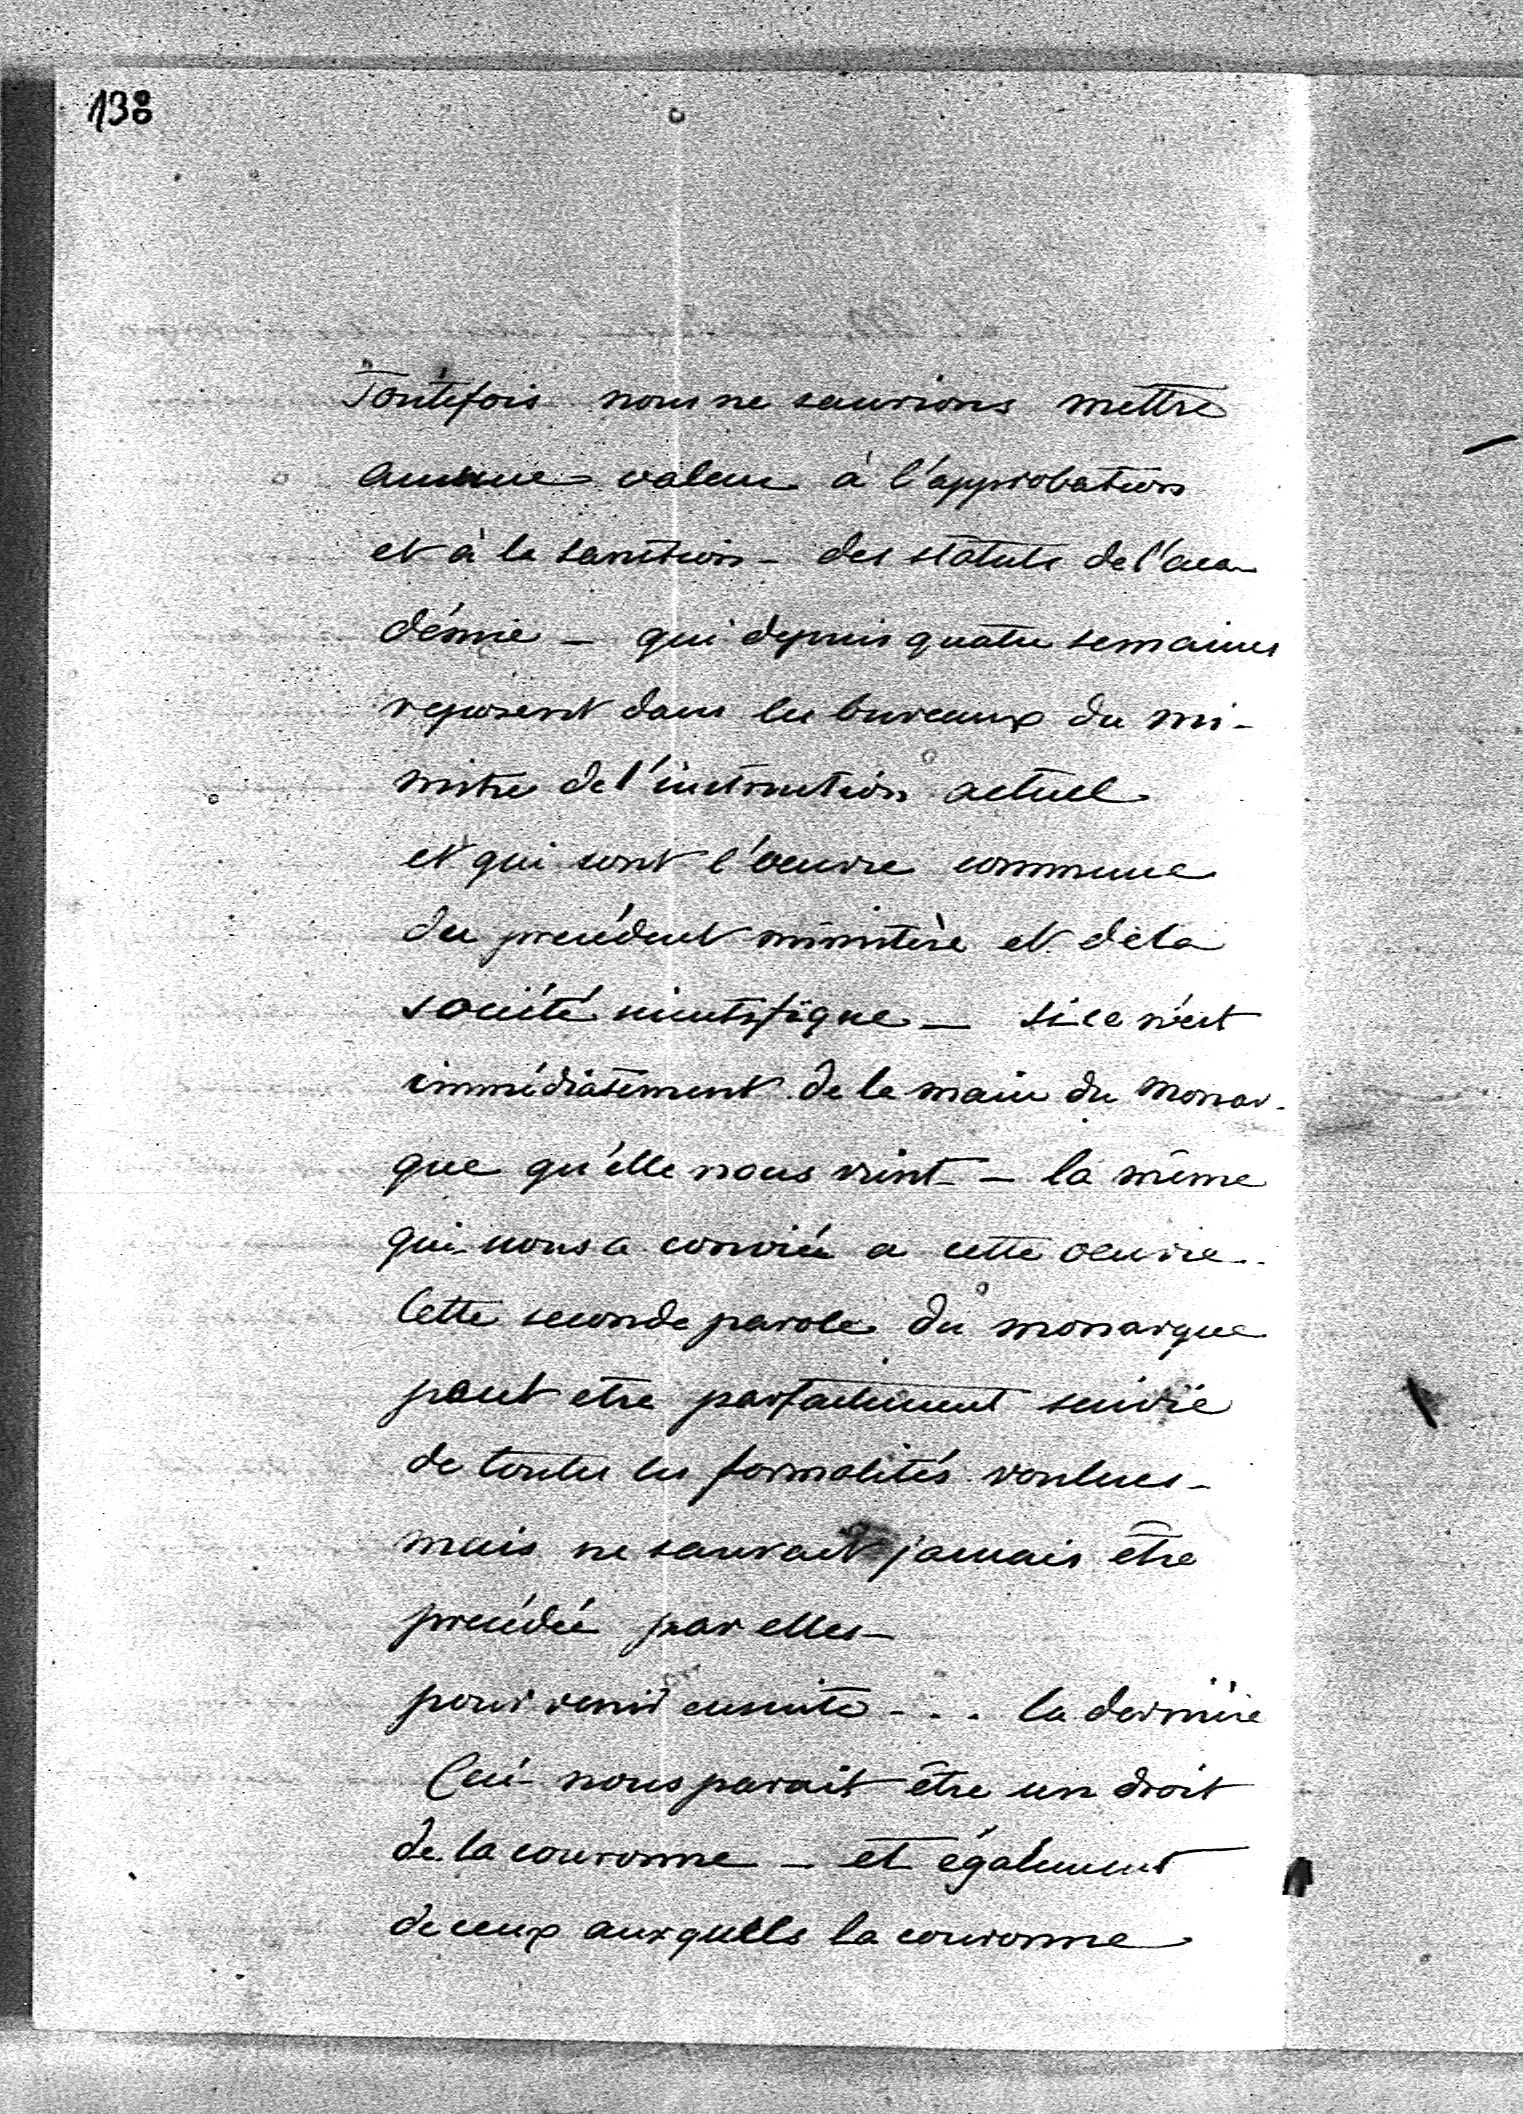 138
Toutefois nous ne saurions mettre
aucune valeur à l'approbation
et à la sanction – des statuts de l'aca-
démie – qui depuis quatre semaines
reposent dans les bureaux du mi-
nistre de l'instruction actuel
et qui sont l'oeuvre commune
du precédent ministère et de la
société scientifique – si ce n'est
immédiatement de la main du monar-
que qu'elle nous vint – la même
qui nous a conviée a cette oeuvre.
Cette seconde parole du monarque
peut etre parfaitement suivie
de toutes les formalités voulues –
mais ne saurait jamais être
precédée par elles –
pour venir ensuite - . . la dernière
Ceci nous parait être un droit
de la couronne – et également
de ceux auxquells la couronne